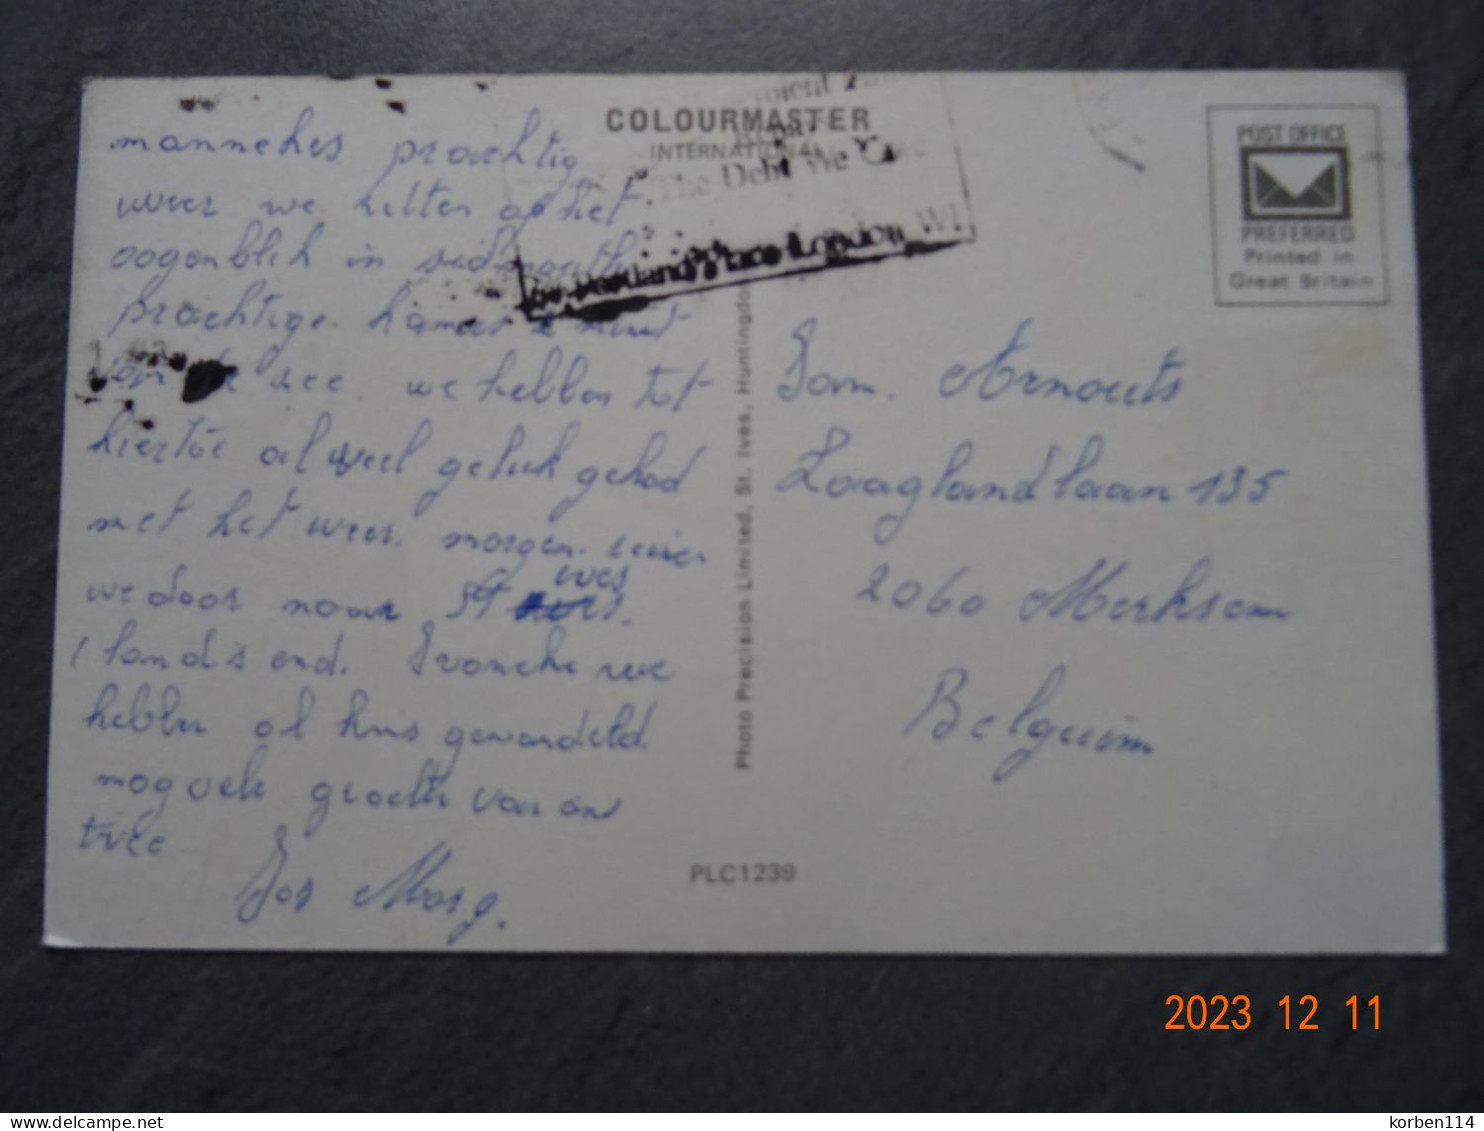 mannekes prachtig
weer we zitten op het
oogenblik in sidmouth
prachtige kamer
van de zee. we hebben tot
hiertoe al veel geluk gehad
met het weer. morgen
we door naar St ives
land's end. Ivonche we
hebben al gewandeld.
nog vele groeten van ons
twee
Jos Marg.
COLOURMASTER
INTERNATIONAL
The Debt We
Portland Place London W1
Photo Precision Limited, St. Ives, Huntingdon
PLC1239
POST OFFICE
PREFERRED
Printed in
Great Britain
Fam. Arnouts
Laaglandlaan 135
2060 Merksem
Belguim
2023 12 11
delcampe.net
korben114